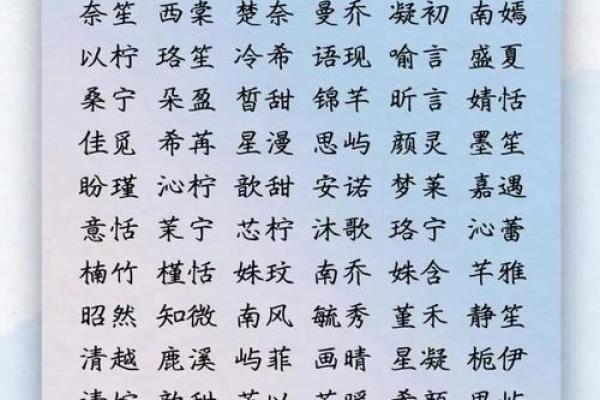 奈笙 西棠 楚奈 曼乔 凝初 南嫣
以柠 珞笙 冷希 语现 喻言 盛夏
桑宁 朵盈 皙甜 锦芊 昕言 婧恬
佳觅 希苒 星漫 思屿 颜灵 墨笙
盼瑾 沁柠 歆甜 安诺 梦莱 嘉遇
意恬 茉宁 芯柠 沐歌 珞宁 沁蕾
楠竹 槿恬 姝玟 南乔 姝含 芊雅
昭然 知微 南风 毓秀 堇禾 静笙
清越 鹿溪 屿菲 画晴 星凝 栀伊